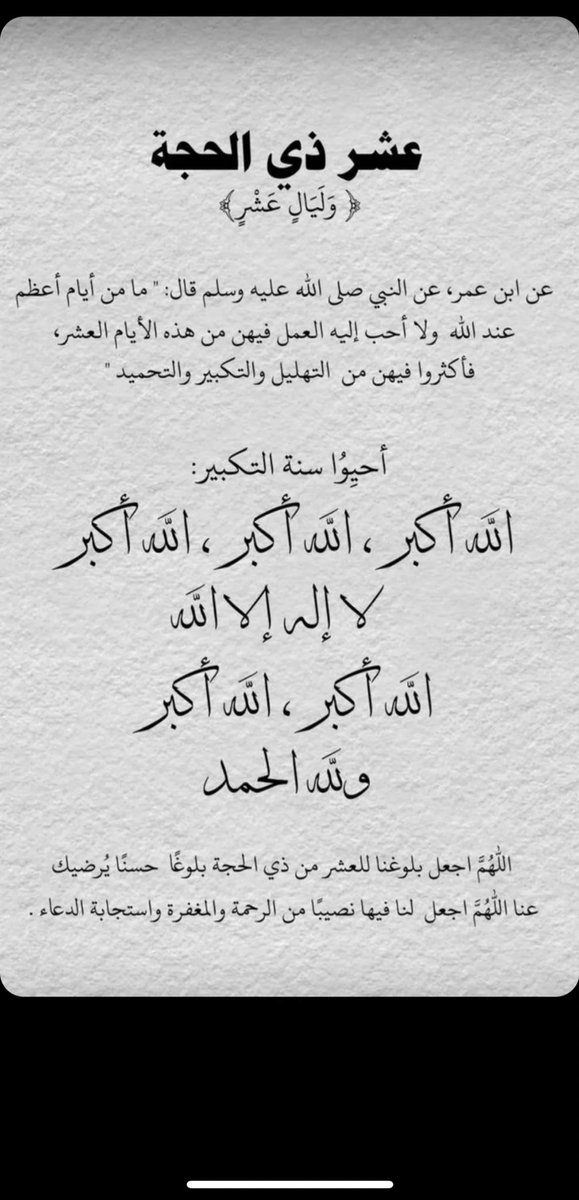 عشر ذي الحجة
﴿ وَلَيَالٍ عَشْرٍ﴾
عن ابن عمر، عن النبي صلى الله عليه وسلم قال: " ما من أيام أعظم
عند الله ولا أحب إليه العمل فيهن من هذه الأيام العشر،
فأكثروا فيهن من التهليل والتكبير والتحميد "
أحيِوُا سنة التكبير:
الله أكبر ، الله أكبر ، الله أكبر
لا إله إلا الله
الله أكبر ، الله أكبر
ولله الحمد
اللَّهُمَّ اجعل بلوغنا للعشر من ذي الحجة بلوغًا حسنًا يُرضيك
عنا اللَّهُمَّ اجعل لنا فيها نصيبًا من الرحمة والمغفرة واستجابة الدعاء .